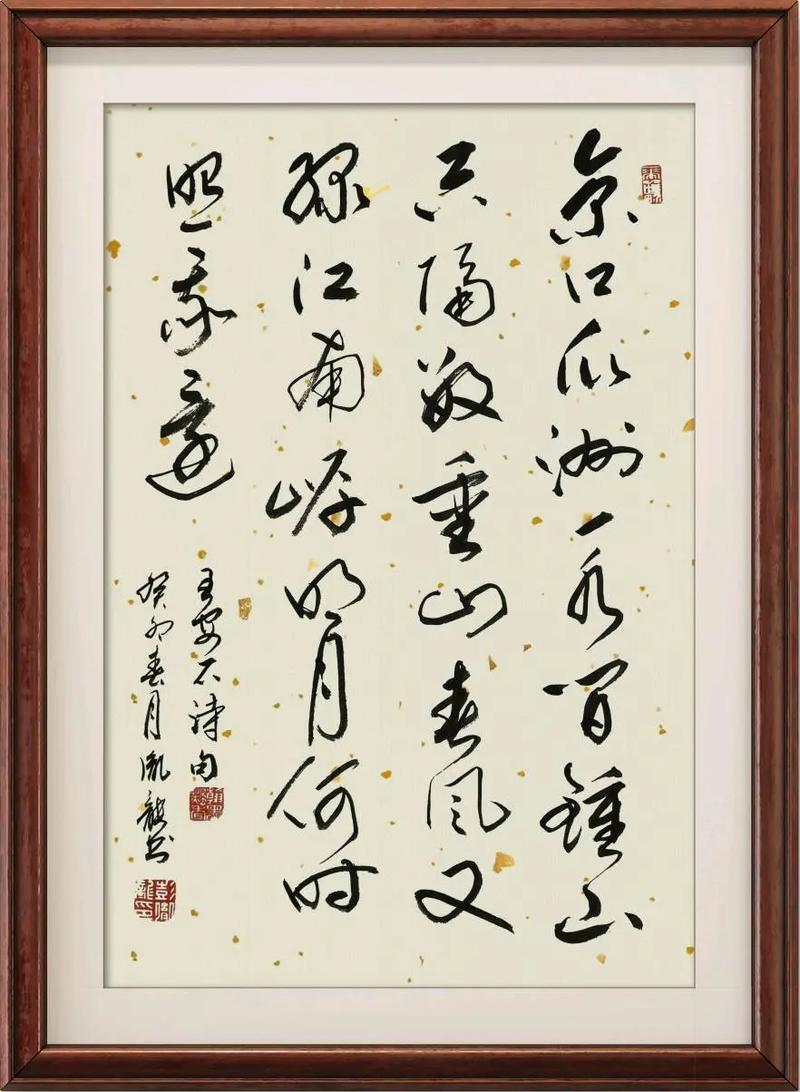 京口瓜洲一水间鍾山
只隔数重山春风又
绿江南岸明月何时
照我還
王安石诗句
癸卯春月胤龍书
彭胤龍印